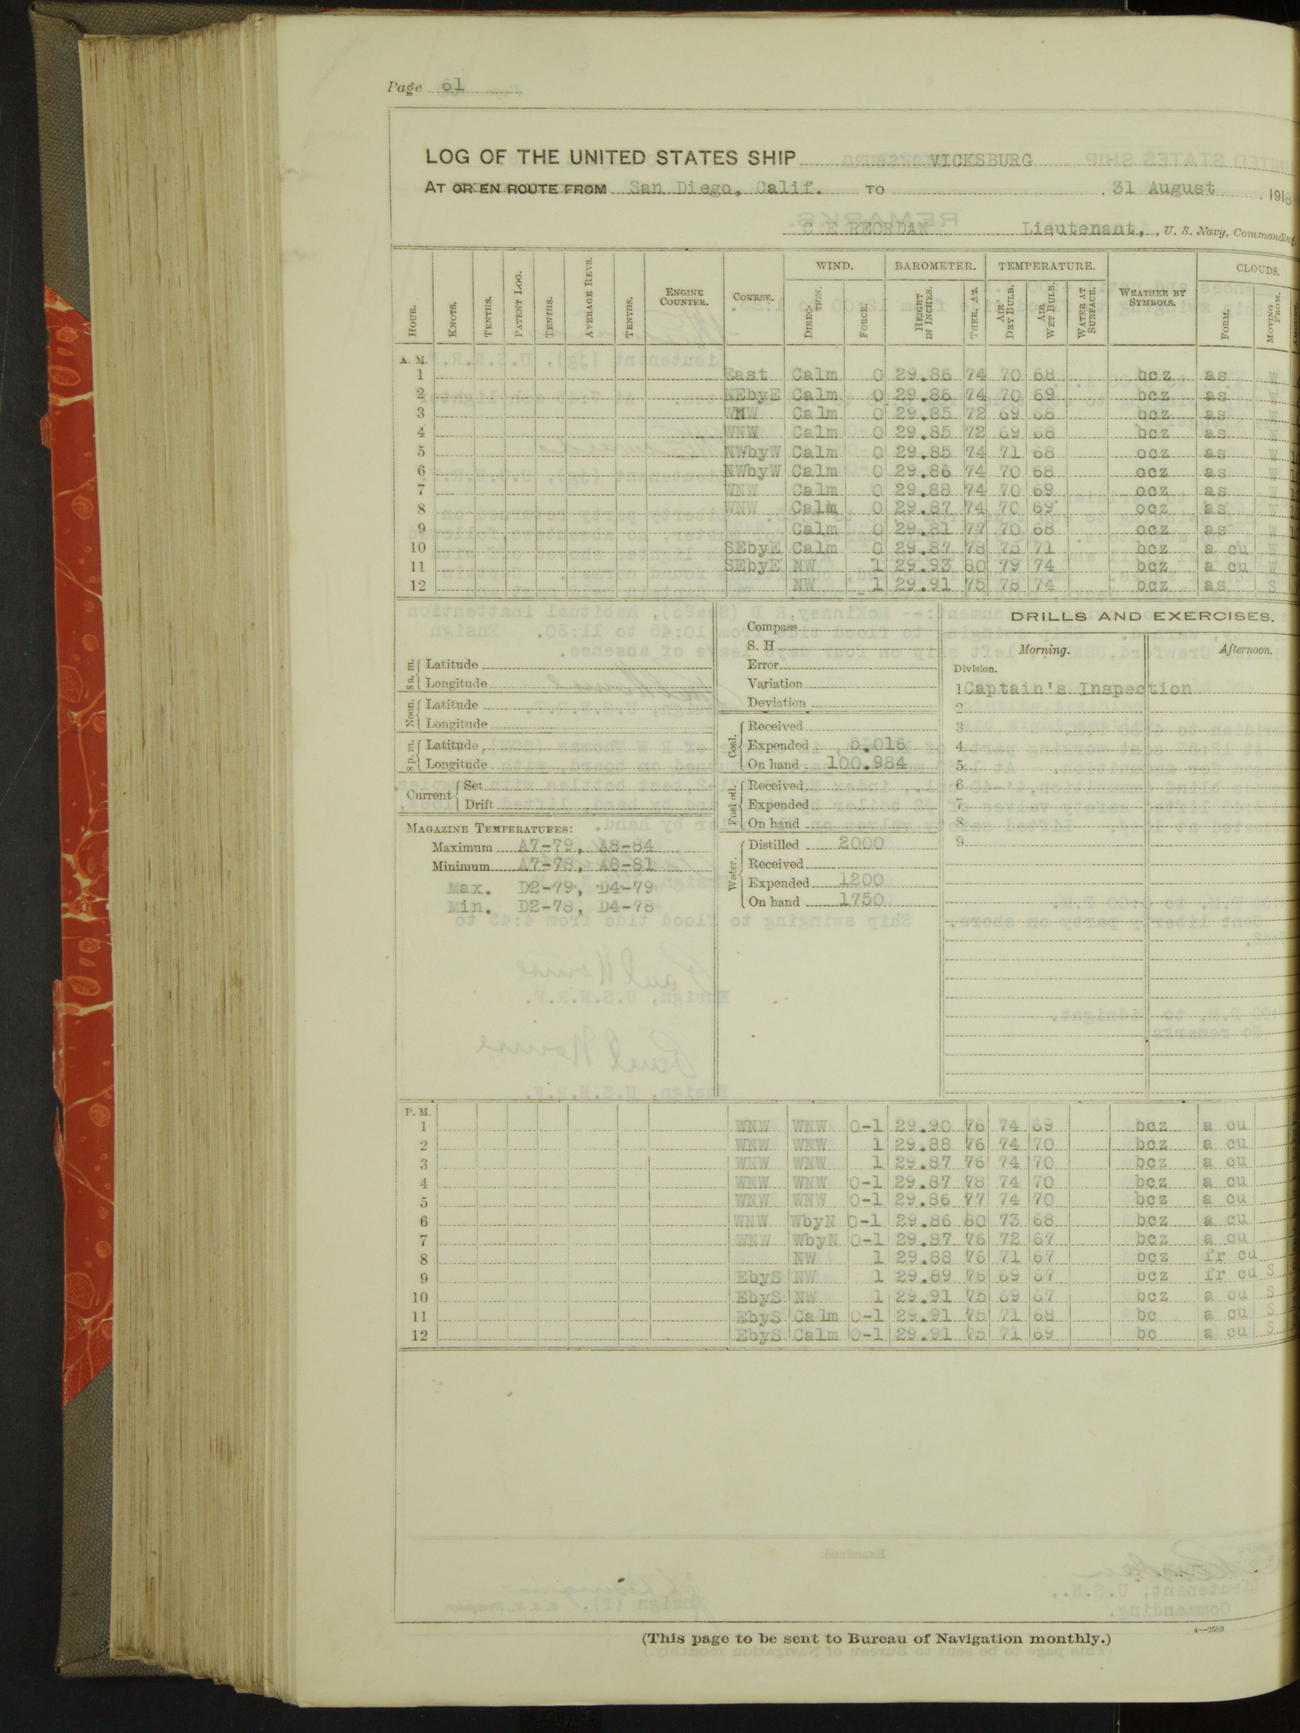 Page 61
LOG OF THE UNITED STATES SHIP VICKSBURG
AT OR EN ROUTE FROM San Diego, Calif. TO , 31 August , 1918
C E REORDAN Lieutenant, , U. S. Navy, Commanding.
HOUR. KNOTS. TENTHS. PATENT LOG. TENTHS. AVERAGE REVS. TENTHS. ENGINE COUNTER. COURSE. WIND. DIRECTION. FORCE. BAROMETER. HEIGHT IN INCHES. THER. AT. TEMPERATURE. AIR DRY BULB. AIR WET BULB. WATER AT SURFACE. WEATHER BY SYMBOLS. CLOUDS. FORM. MOVING FROM.
A. M.
1 East Calm 0 29.86 74 70 68 bcz as W
2 NEbyE Calm 0 29.86 74 70 69 bcz as W
3 WNW Calm 0 29.85 72 69 68 bcz as W
4 WNW Calm 0 29.85 72 69 68 bcz as W
5 NWbyW Calm 0 29.85 74 71 68 ocz as W
6 NWbyW Calm 0 29.86 74 70 68 ocz as W
7 WNW Calm 0 29.88 74 70 69 ocz as W
8 WNW Calm 0 29.87 74 70 69 ocz as W
9 Calm 0 29.81 77 70 68 ocz as W
10 SEbyE Calm 0 29.87 78 75 71 bcz a cu W
11 SEbyE NW 1 29.93 80 79 74 bcz a cu W
12 NW 1 29.91 75 78 74 bcz as S
8 a. m. Latitude
Longitude
Noon. Latitude
Longitude
8 p. m. Latitude
Longitude
Current Set
Drift
MAGAZINE TEMPERATURES:
Maximum A7-79, A8-84
Minimum A7-78, A8-81
Max. D2-79, D4-79
Min. D2-78, D4-78
Compass
S. H
Error
Variation
Deviation
Coal. Received
Expended 5.016
On hand 100.984
Fuel oil. Received
Expended
On hand
Water. Distilled 2000
Received
Expended 1200
On hand 1750
DRILLS AND EXERCISES.
Morning. Afternoon.
Division.
1 Captain's Inspection
2
3
4
5
6
7
8
9
P. M.
1 WNW WNW 0-1 29.90 76 74 69 bcz a cu
2 WNW WNW 1 29.88 76 74 70 bcz a cu
3 WNW WNW 1 29.87 76 74 70 bcz a cu
4 WNW WNW 0-1 29.87 78 74 70 bcz a cu
5 WNW WNW 0-1 29.86 77 74 70 bcz a cu
6 WNW WbyN 0-1 29.86 80 73 68 bcz a cu
7 WNW WbyN 0-1 29.87 76 72 67 bcz a cu
8 NW 1 29.88 76 71 67 bcz fr cu
9 EbyS NW 1 29.89 76 69 67 bcz fr cu S
10 EbyS NW 1 29.91 75 69 67 bcz a cu S
11 EbyS Calm 0-1 29.91 75 71 68 bc a cu S
12 EbyS Calm 0-1 29.91 75 71 69 bc a cu S
(This page to be sent to Bureau of Navigation monthly.)